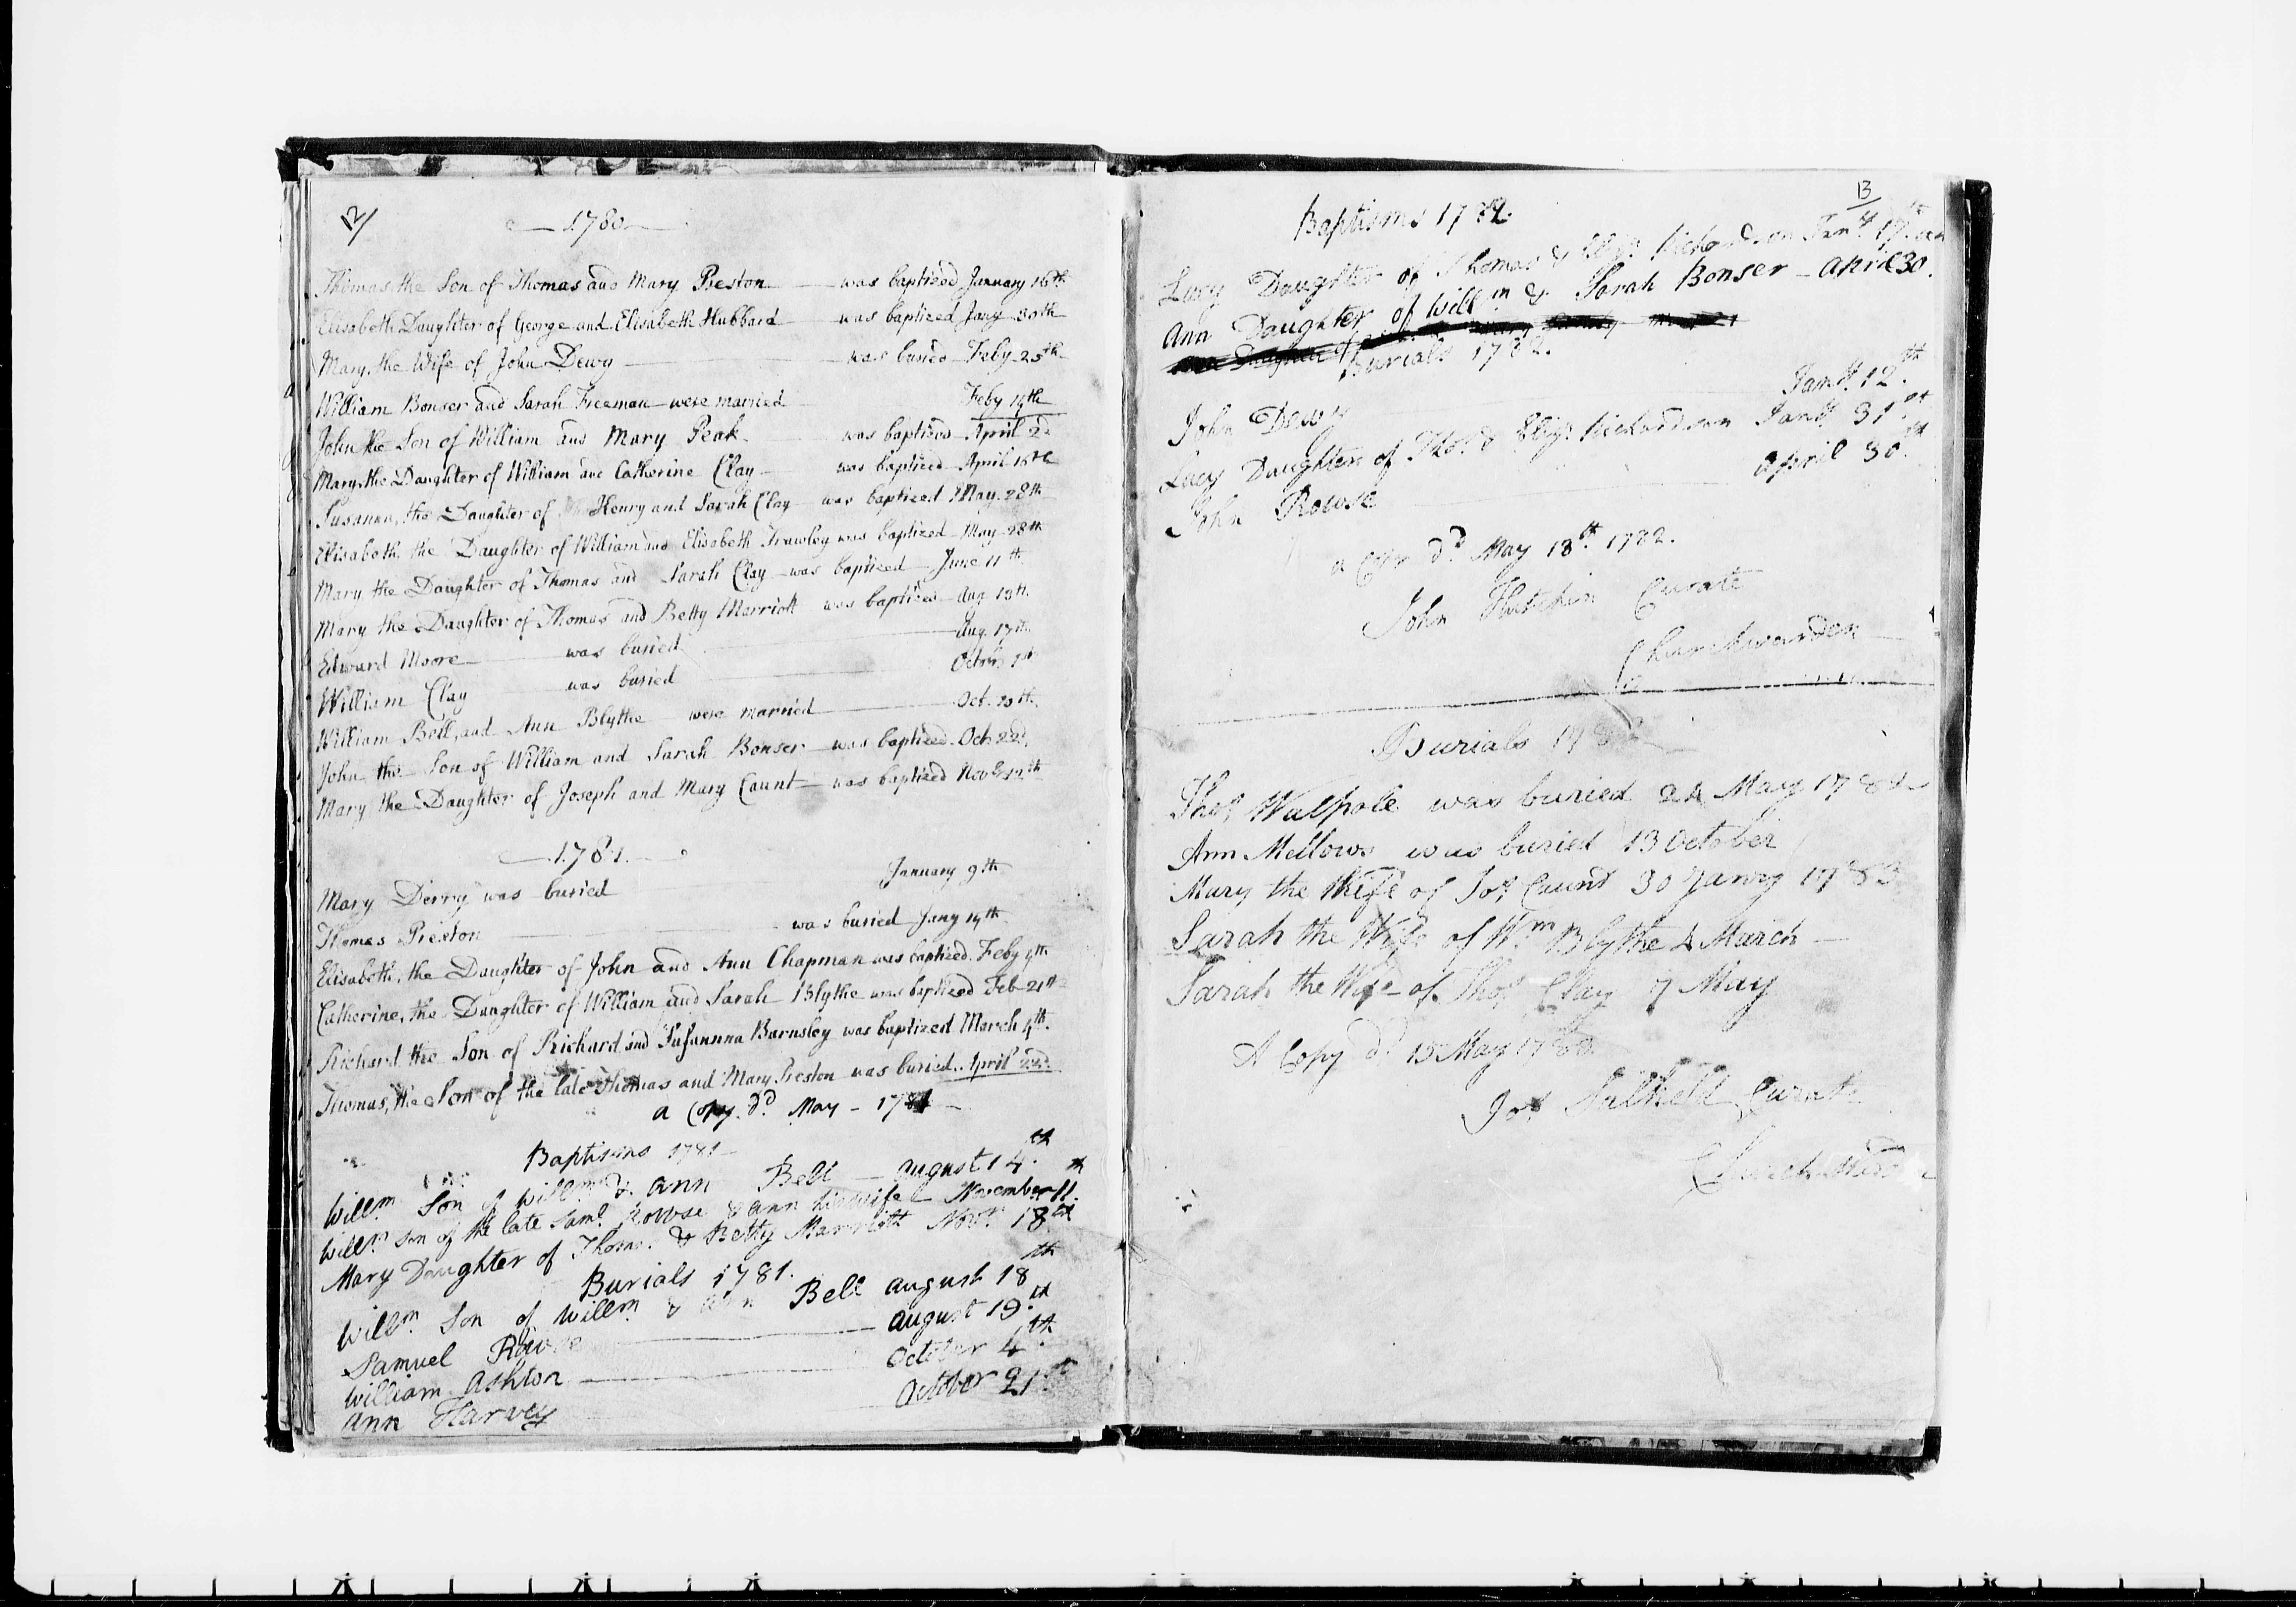 12/
1780
Thomas the Son of Thomas and Mary Preston was baptized January 16th
Elisabeth Daughter of George and Elisabeth Hubbard was baptized Jany 30th
Mary, the Wife of John Dewy was buried Feby 25th
William Bonser and Sarah Freeman were married Feby 14th
John the Son of William and Mary Peak was baptized April 2d
Mary, the Daughter of William and Catherine Clay was baptized April 16th
Susanna, the Daughter of Henry and Sarah Clay was baptized May 28th
Elisabeth the Daughter of William and Elisabeth Frawley was baptized May 28th
Mary the Daughter of Thomas and Sarah Clay was baptized June 11th
Mary the Daughter of Thomas and Betty Marriott was baptized Aug 13th
Edward Moore was buried Aug. 17th
William Clay was buried Octobr
William Bell, and Ann Blythe were married Oct.
John the Son of William and Sarah Bonser was baptized Oct 22d
Mary the Daughter of Joseph and Mary Caunt was baptized Novbr 12th
1781
Mary Derry was buried January 9th
Thomas Preston was buried Jany 14th
Elisabeth, the Daughter of John and Ann Chapman was baptized Feby 4th
Catherine, the Daughter of William and Sarah Blythe was baptized Feb 21st
Richard the Son of Richard and Susannna Barnsley was baptized March 4th.
Thomas, the Son of the late Thomas and Mary Preston was buried April 22d
a Copy dd May - 1781
Baptisms 1781
Willm Son of Willm & ann Bell august 14th
Willm son of the late Saml Rowse & ann his wife November 11th
Mary Daughter of Thoms. & Betty Marriott Novr 18th
Burials 1781.
Willm Son of Willm & ann Bell august 18th
Samuel Rowse august 19th
William Ashton October 4th
ann Harvey October 21st
13
Baptisms 1782
Lucy Daughter of Thomas & Eliz: Richardson Jany 17th
Ann Daughter of Willm & Sarah Bonser - April 30.
Burials 1782.
John Dewy Jany 12th
Lucy Daughter of Thos. & Eliz: Richardson Jany 31st
John Rowse April 30th
a Copy dd May 13th 1782.
John Hutchin Curate
Churchwarden
Burials 178
Thos Walpole was buried 24 May 1782
Ann Mellows was buried 13 October
Mary the Wife of Jos Caunt 30 Janry 1783
Sarah the Wife of Wm Blythe 4 March
Sarah the Wife of Thos Clay 7 May
A Copy d. 15 May 1783
Jos Salkeld Curate